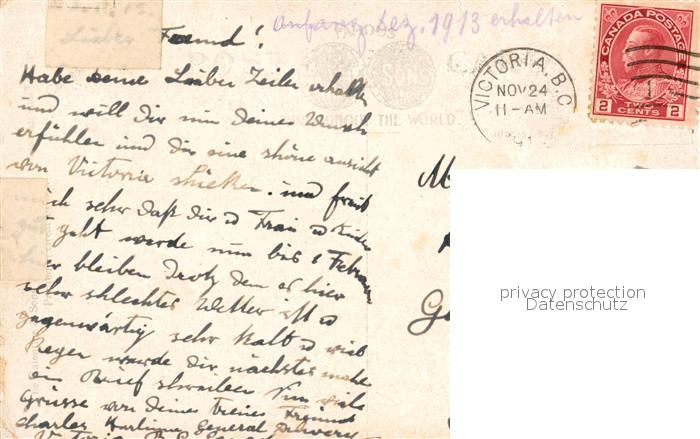 Anfang Dez. 1913 erhalten
Freund!
Habe deine Lieben Zeilen erhalten
und will dir nun deinen Wunsch
erfüllen und dir eine shöne ansicht
von Victoria shicken. und freut
mich sehr daß dir u Frau u Kinder
geht werde nun bis 1 Februar
hier bleiben Drotz dem es hier
sehr shlechtes Wetter ist u
gegenwärtig sehr Kalt u viel
Regen werde dir nächstes mahl
ein Brief shreiben Nun viele
Grüsse von deinen treuen Freund
Charles General Delivery
Victoria B.C.
THROUGHOUT THE WORLD.
VICTORIA, B.C.
NOV 24
11-AM
CANADA POSTAGE
2 TWO CENTS 2
M
Ge
privacy protection
Datenschutz